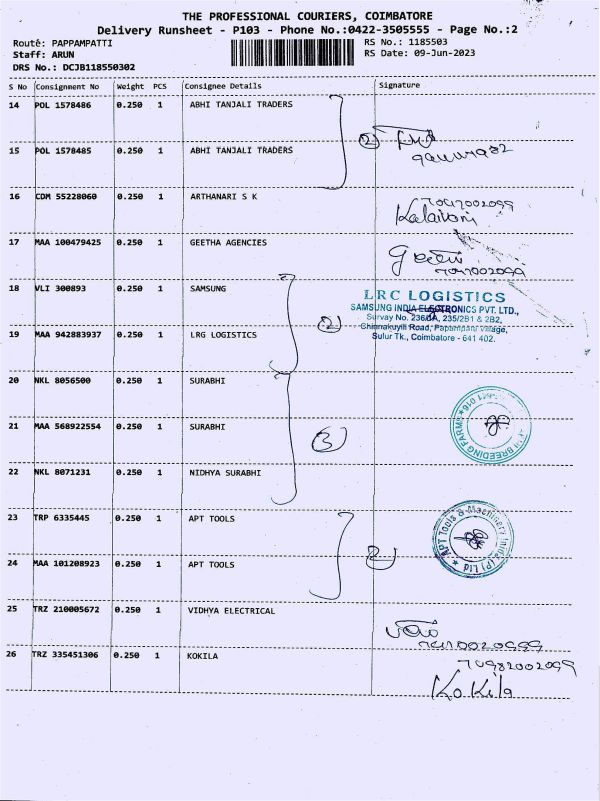 THE PROFESSIONAL COURIERS, COIMBATORE
Delivery Runsheet - P103 - Phone No.:0422-3505555 - Page No.:2
Route: PAPPAMPATTI
RS No.: 1185503
Staff: ARUN
RS Date: 09-Jun-2023
DRS No.: DCJB118550302
S No Consignment No Weight PCS Consignee Details Signature
14 POL 1578486 0.250 1 ABHI TANJALI TRADERS
2
15 POL 1578485 0.250 1 ABHI TANJALI TRADERS
16 CDM 55228060 0.250 1 ARTHANARI S K
Kalaivani
17 MAA 100479425 0.250 1 GEETHA AGENCIES
18 VLI 300893 0.250 1 SAMSUNG
LRC LOGISTICS
SAMSUNG INDIA ELECTRONICS PVT. LTD.,
2
Survey No. 235/2B1 & 2B2,
19 MAA 942883937 0.250 1 LRG LOGISTICS
Chinnakuyili Road, Papampatti Village,
Sulur Tk., Coimbatore - 641 402.
20 NKL 8056500 0.250 1 SURABHI
21 MAA 568922554 0.250 1 SURABHI
3
BREEDING FARMS
22 NKL 8071231 0.250 1 NIDHYA SURABHI
23 TRP 6335445 0.250 1 APT TOOLS
APT Tools & Machinery India (P) Ltd
2
24 MAA 101208923 0.250 1 APT TOOLS
25 TRZ 210005672 0.250 1 VIDHYA ELECTRICAL
26 TRZ 335451306 0.250 1 KOKILA
Kokila